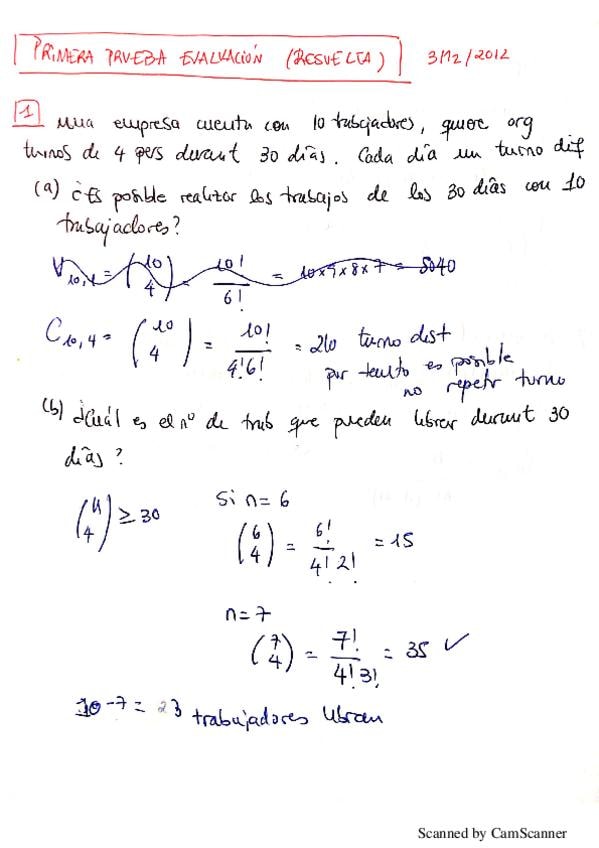 PRIMERA PRUEBA EVALUACIÓN (RESUELTA) 3/12/2012
1 Una empresa cuenta con 10 trabajadores, quiere org
turnos de 4 pers durant 30 días. Cada día un turno dif
(a) ¿Es posible realizar los trabajos de los 30 días con 10
trabajadores?
V10,4 = (10 4) = 10!/6! = 10×9×8×7 = 5040
C10,4 = (10 4) = 10!/4!6! = 210 turno dist
por tanto es posible
no repetir turno
(b) ¿Cuál es el nº de trab que pueden librar durant 30
días?
(n 4) ≥ 30
Si n=6
(6 4) = 6!/4!2! = 15
n=7
(7 4) = 7!/4!3! = 35 ✓
10-7 = 3 trabajadores libran
Scanned by CamScanner